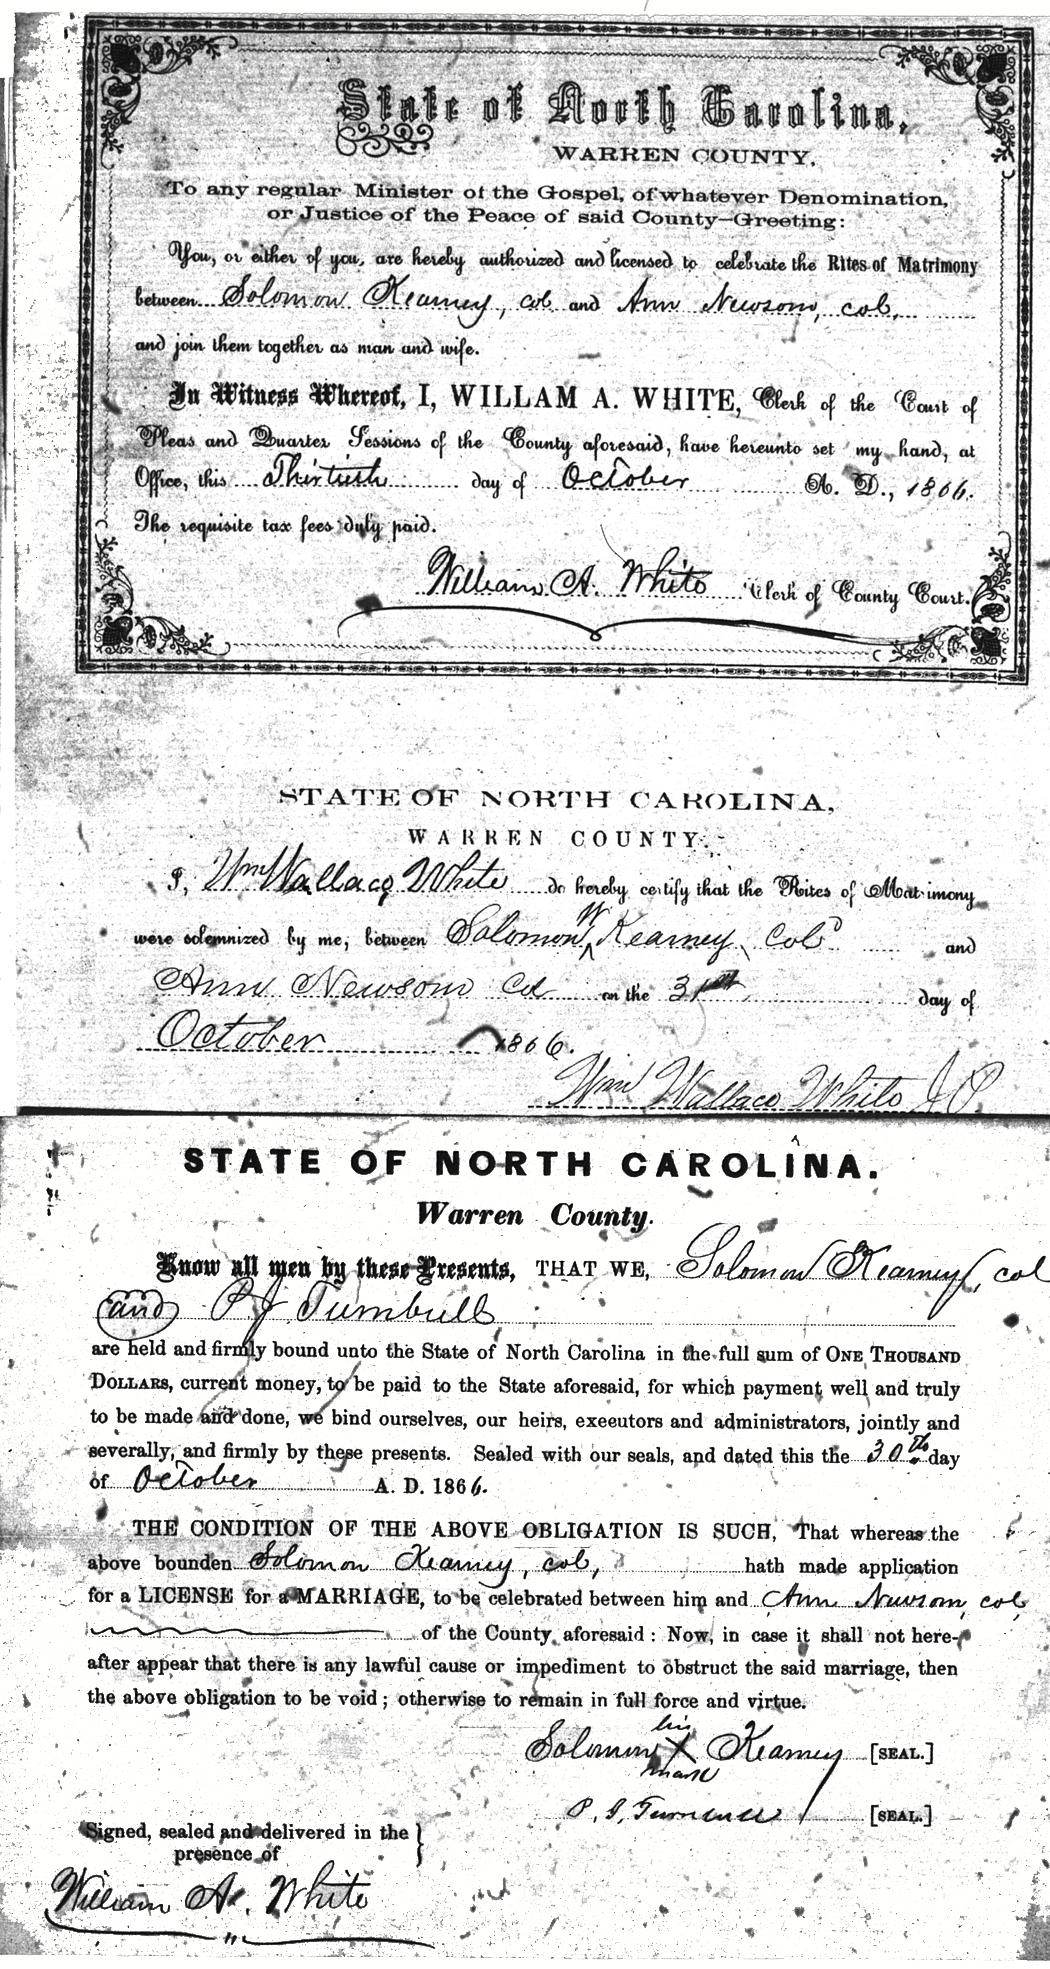 State of North Carolina,
WARREN COUNTY.
To any regular Minister of the Gospel, of whatever Denomination,
or Justice of the Peace of said County—Greeting:
You, or either of you, are hereby authorized and licensed to celebrate the Rites of Matrimony
between Solomon Kearney, col and Ann Newsom, col,
and join them together as man and wife.
In Witness Whereof, I, WILLAM A. WHITE, Clerk of the Court of
Pleas and Quarter Sessions of the County aforesaid, have hereunto set my hand, at
Office, this Thirtieth day of October A. D., 1866.
The requisite tax fees duly paid.
William A. White Clerk of County Court.
STATE OF NORTH CAROLINA,
WARREN COUNTY.
I, Wm Wallace White do hereby certify that the Rites of Matrimony
were solemnized by me, between Solomon W Kearney Cold and
Ann Newsom Cd on the 31st day of
October 1866.
Wm Wallace White J P
STATE OF NORTH CAROLINA.
Warren County.
Know all men by these Presents, THAT WE, Solomon Kearney, col
and P. J. Turnbull
are held and firmly bound unto the State of North Carolina in the full sum of ONE THOUSAND
DOLLARS, current money, to be paid to the State aforesaid, for which payment well and truly
to be made and done, we bind ourselves, our heirs, exeeutors and administrators, jointly and
severally, and firmly by these presents. Sealed with our seals, and dated this the 30th day
of October A. D. 1866.
THE CONDITION OF THE ABOVE OBLIGATION IS SUCH, That whereas the
above bounden Solomon Kearney, col, hath made application
for a LICENSE for a MARRIAGE, to be celebrated between him and Ann Newsom, col,
of the County aforesaid : Now, in case it shall not here-
after appear that there is any lawful cause or impediment to obstruct the said marriage, then
the above obligation to be void ; otherwise to remain in full force and virtue.
his
Solomon X Kearney [SEAL.]
mark
P. J. Turnbull [SEAL.]
Signed, sealed and delivered in the
presence of
William A. White